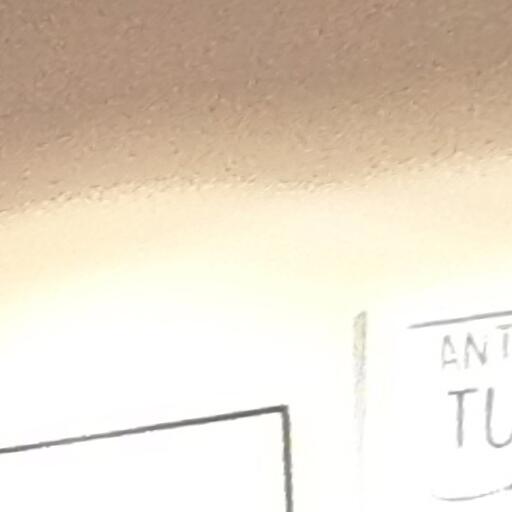 ANT
TU